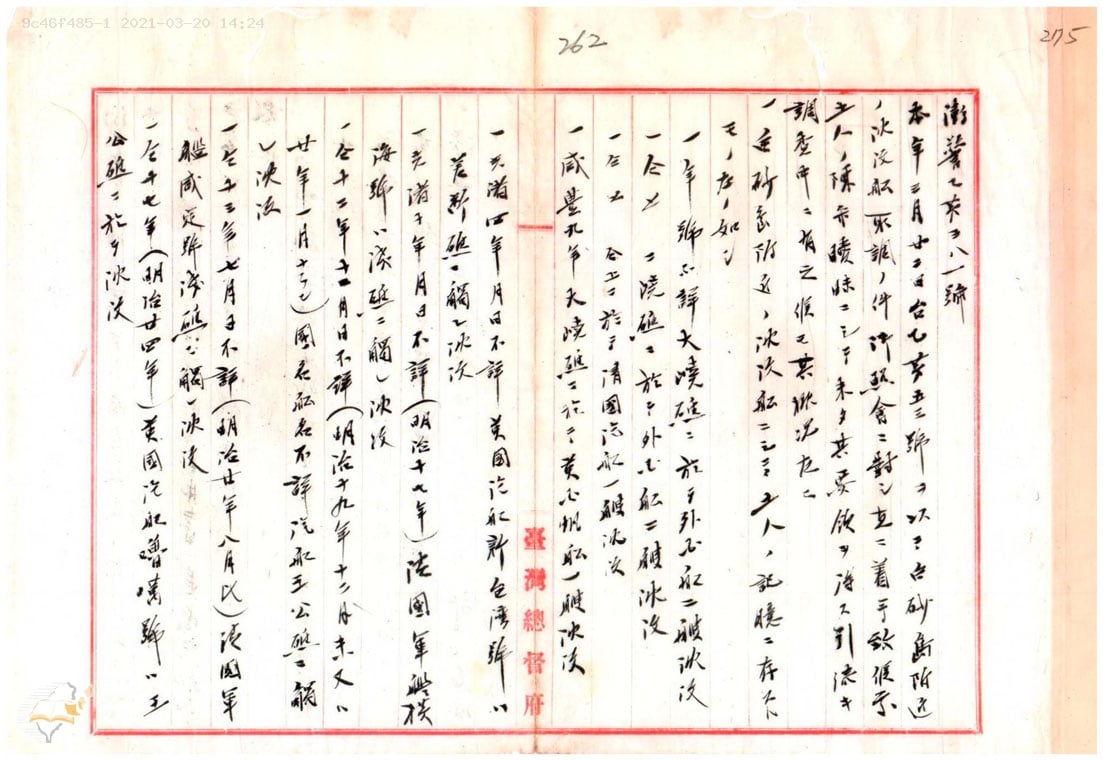 9c46f485-1 2021-03-20 14:24
262
275
澎警乙第三八一號
本年三月廿二日台乙第五三號ヲ以テ白砂島附近
ノ沈没船取調ノ件御照會ニ對シ直ニ着手致候
土人ノ陳述曖昧ニシテ未タ其要領ヲ得ス引續キ
調査中ニ有之候
一白砂島附近ノ沈没船ニシテ土人ノ記臆ニ存スル
モノ左ノ如シ
一年號不詳大磽礁ニ於テ外國船二艘沈没
一仝上 二磽礁ニ於テ外國船二艘沈没
一仝上 仝上ニ於テ清國汽船一艘沈没
一咸豊九年大磽礁ニ於テ英國帆船一艘沈没
臺灣總督府
一光緒四年月日不詳英國汽船新台湾號ハ
礁ニ觸レ沈没
一光緒十年月日不詳(明治十七年)法國軍艦
海號ハ浅礁ニ觸レ沈没
一仝十二年十一月日不詳(明治十九年十二月末又ハ
廿年一月十)國名船名不詳汽船王公礁ニ觸
レ沈没
一仝十三年七月日不詳(明治廿年八月比)清國軍
艦威定號浅礁ニ觸レ沈没
一仝十七年(明治廿四年)英國汽船 號ハ王
公礁ニ於テ沈没